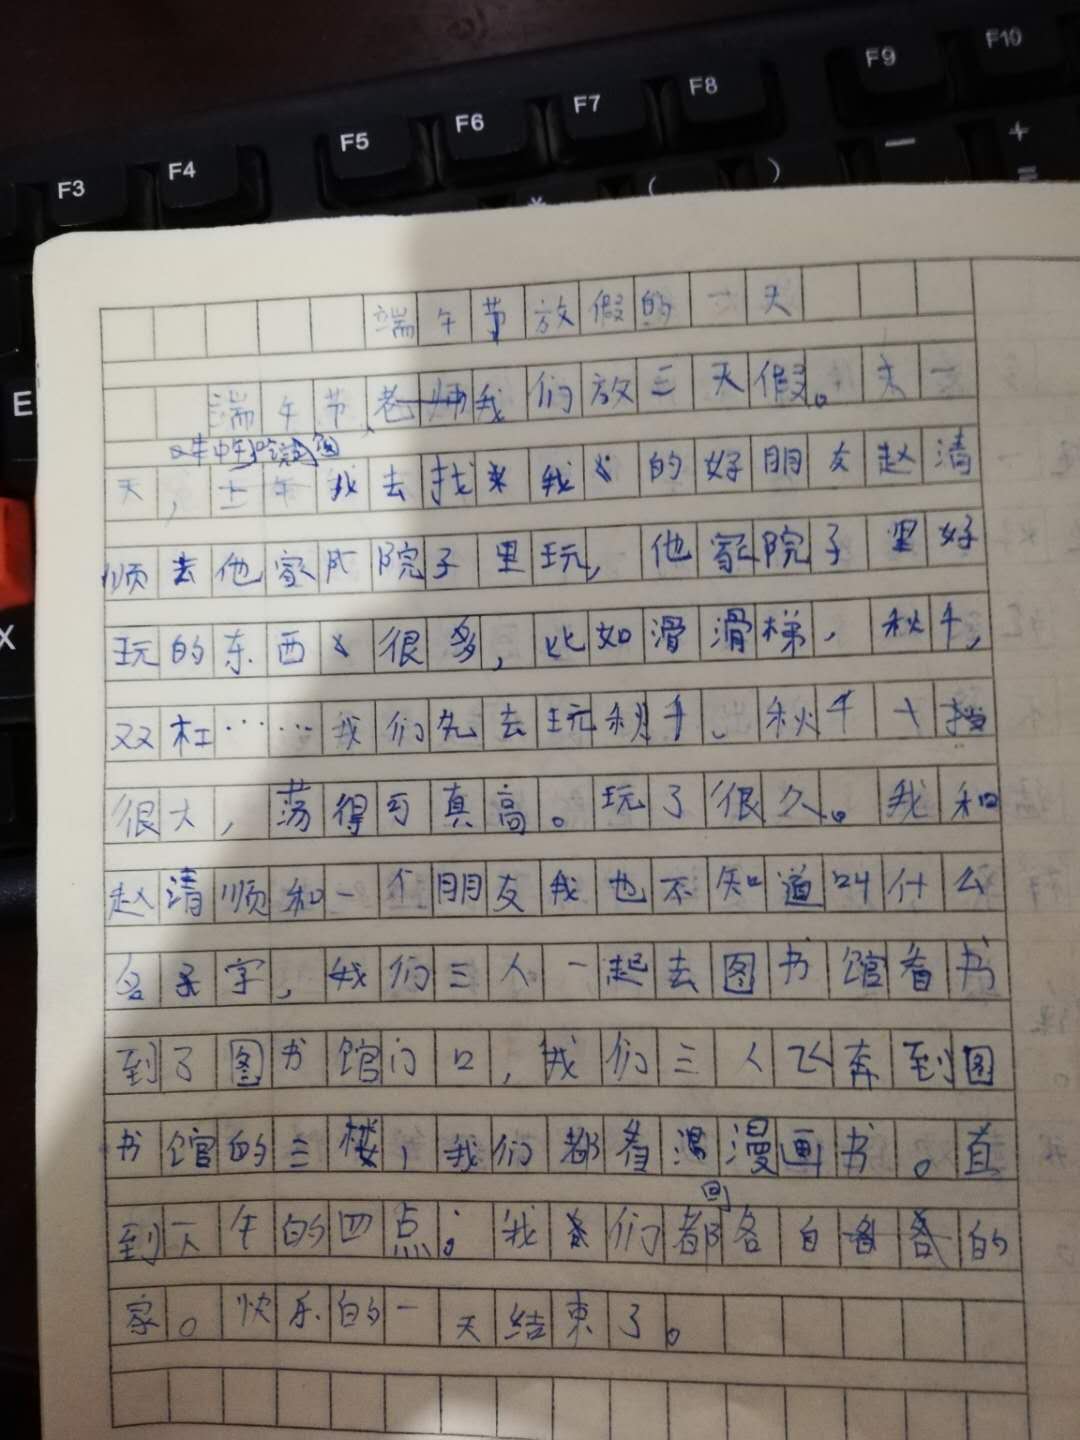 F3 F4 F5 F6 F7 F8 F9 F10
( ) — +
=
E
X
端午节放假的一天
端午节,我们放三天假。第一
天,我去找我的好朋友赵清
顺去他家院子里玩,他家院子里好
玩的东西很多,比如滑滑梯,秋千,
双杠……我们先去玩秋千、秋千
很大,荡得可真高。玩了很久。我和
赵清顺和一个朋友我也不知道叫什么
名字,我们三人一起去图书馆看书
到了图书馆门口,我们三人飞奔到图
书馆的三楼,我们都看漫画书。直
到下午的四点。我们都回各自的
家。快乐的一天结束了。